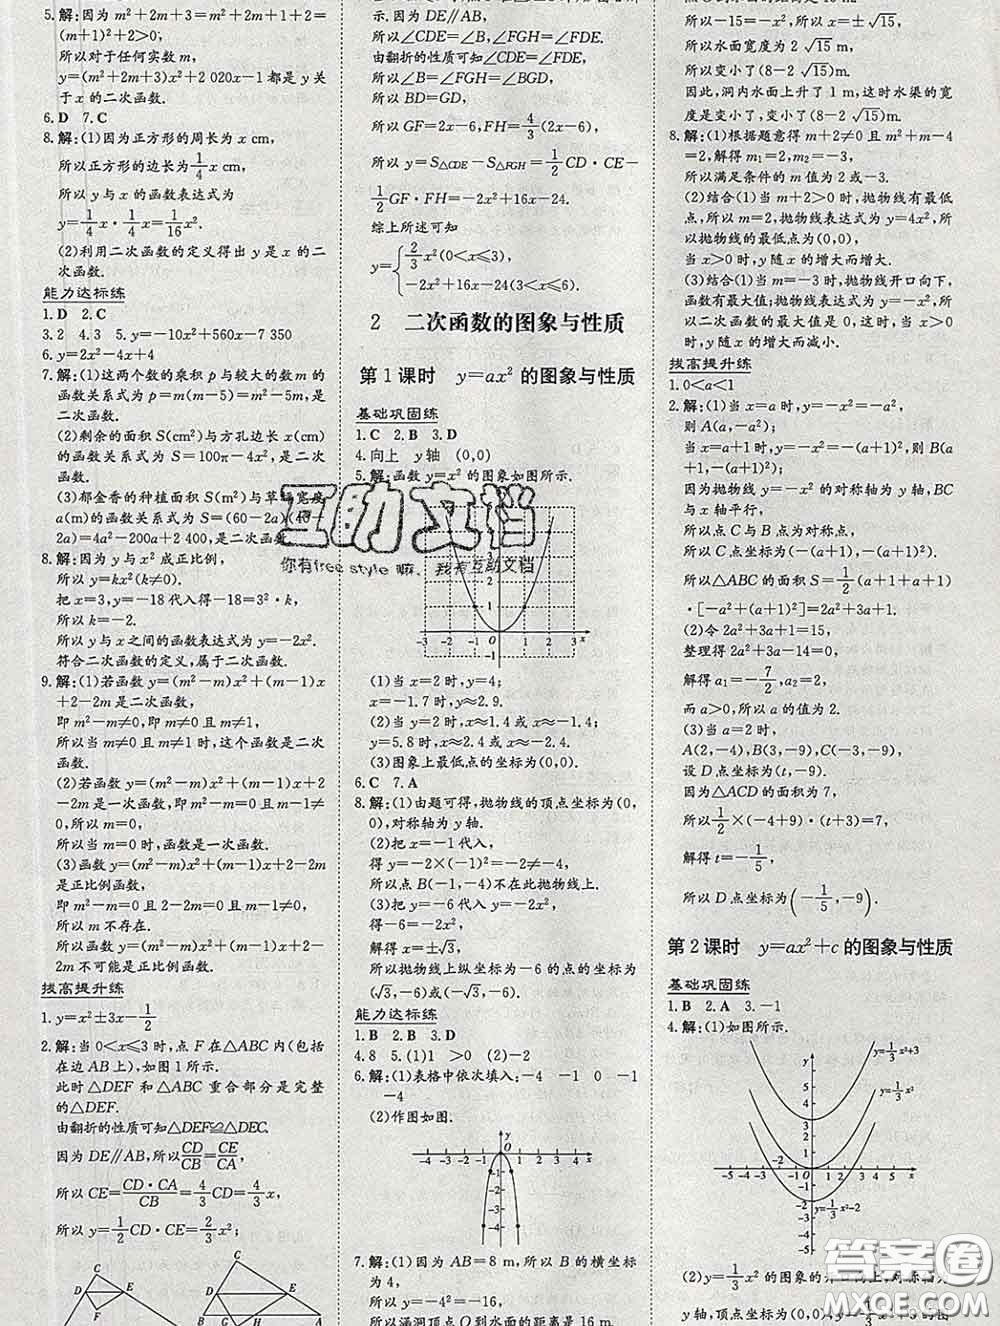 5.解:m²+2m+3=m²+2m+1+2=
(m+1)²+2>0,
所以对于任何实数m,
y=(m²+2m+3)x²+2 020x-1都是y关
于x的二次函数.
6.D 7.C
8.解:(1)因为正方形的周长为x cm,
所以正方形的边长为1/4 x cm,
所以y与x的函数表达式为
y=1/4 x·1/4 x=1/16 x².
(2)利用二次函数的定义得出y是x的二
次函数.
能力达标练
1.D 2.C
3.2 4.3 5.y=-10x²+560x-7 350
6.y=2x²-4x+4
7.解:(1)这两个数的乘积p与较大的数m的
函数关系式为p=m(m-5)=m²-5m,
是二次函数.
(2)剩余的面积S(cm²)与方孔边长x(cm)
的函数关系式为S=100π-4x²,是二次
函数.
(3)郁金香的种植面积S(m²)与草坪宽度
a(m)的函数关系式为S=(60-2a)(40-
2a)=4a²-200a+2 400,是二次函数.
8.解:因为y与x²成正比例,
所以y=kx²(k≠0).
把x=3,y=-18代入得-18=3²·k,
所以k=-2.
所以y与x之间的函数表达式为y=-2x².
符合二次函数的定义,属于二次函数.
9.解:(1)若函数y=(m²-m)x²+(m-1)x
+2-2m是二次函数,
即m²-m≠0,即m≠0且m≠1,
所以当m≠0且m≠1时,这个函数是二次
函数.
(2)若函数y=(m²-m)x²+(m-1)x+2-
2m是一次函数,即m²-m=0且m-1≠0,
所以m=0,
所以当m=0时,函数是一次函数.
(3)函数y=(m²-m)x²+(m-1)x+2-2m
是正比例函数,
则m²-m=0且2-2m=0且m-1≠0,
所以m不存在.
所以函数y=(m²-m)x²+(m-1)x+2-
2m不可能是正比例函数.
拔高提升练
1.y=x²±3x-1/2
2.解:当0<x≤3时,点F在△ABC内(包括
在边AB上),如图1所示.
此时△DEF和△ABC重合部分是完整
的△DEF.
由翻折的性质可知△DEF≌△DEC.
因为DE∥AB,所以CD/CB=CE/CA,
所以CE=CD·CA/CB=4/3 CD=4/3 x,
所以y=1/2 CD·CE=2/3 x²;
C
D E
F
C
D E
因为DE∥AB,
所以∠CDE=∠B,∠FGH=∠FDE.
由翻折的性质可知∠CDE=∠FDE,
所以∠B=∠FGH=∠BGD,
所以BD=GD,
所以GF=2x-6,FH=4/3(2x-6),
所以y=S△CDE-S△FGH=1/2 CD·CE-
1/2 GF·FH=-2x²+16x-24.
综上所述可知
y={2/3 x²(0<x≤3),
-2x²+16x-24(3<x≤6).
2 二次函数的图象与性质
第1课时 y=ax²的图象与性质
基础巩固练
1.C 2.B 3.D
4.向上 y轴 (0,0)
5.解:函数y=x²的图象如图所示.
互助文档
你有free style嘛, 我有互助文档
3
2
1
-3 -2 -1 O 1 2 3 x
-1
(1)当x=2时,y=4;
x=-1.7时,y≈2.9.
(2)当y=2时,x≈1.4或x≈-1.4;
y=5.8时,x≈2.4或x≈-2.4.
(3)图象上最低点的坐标为(0,0).
6.C 7.A
8.解:(1)由题可得,抛物线的顶点坐标为(0,
0),对称轴为y轴.
(2)把x=-1代入,
得y=-2×(-1)²=-2≠-4,
所以点B(-1,-4)不在此抛物线上.
(3)把y=-6代入y=-2x²,
得-6=-2x²,
解得x=±√3,
所以抛物线上纵坐标为-6的点的坐标为
(√3,-6)或(-√3,-6).
能力达标练
1.B 2.B 3.D
4.8 5.(1)1 >0 (2)-2
6.解:(1)表格中依次填入:-4 -1 0 -1
-4
(2)作图如图.
y
-4 -3 -2 -1 O 1 2 3 4 x
-1
-2
-3
-4
7.解:(1)因为AB=8 m,所以B的横坐标
为4,
所以y=-4²=-16,
所以涵洞顶点O到水面的距离是16 m.
所以-15=-x²,所以x=±√15,
所以水面宽度为2√15 m.
所以变小了(8-2√15)m.
因此,洞内水面上升了1 m,这时水渠的宽
度是变小了,变小了(8-2√15)m.
8.解:(1)根据题意得m+2≠0且m²+m-4
=2,解得m₁=2,m₂=-3.
所以满足条件的m值为2或-3.
(2)结合(1)当m+2>0时,抛物线有最低
点,所以m=2,抛物线表达式为y=4x²,
所以抛物线的最低点为(0,0),
当x>0时,y随x的增大而增大.
(3)结合(1)当m=-3时,抛物线开口向下,
函数有最大值;抛物线表达式为y=-x²,所
以二次函数的最大值是0,这时,当x>0
时,y随x的增大而减小.
拔高提升练
1.0<a<1
2.解:(1)当x=a时,y=-x²=-a²,
则A(a,-a²).
当x=a+1时,y=-x²=-(a+1)²,则B(a
+1,-(a+1)²).
因为抛物线y=-x²的对称轴为y轴,BC
与x轴平行,
所以点C与B点为对称点,
所以C点坐标为(-(a+1),-(a+1)²).
所以△ABC的面积S=1/2(a+1+a+1)
·[-a²+(a+1)²]=2a²+3a+1.
(2)令2a²+3a+1=15,
整理得2a²+3a-14=0,
解得a₁=-7/2,a₂=2,
而a>0,所以a的值为2.
(3)当a=2时,
A(2,-4),B(3,-9),C(-3,-9).
设D点坐标为(t,-9).
因为△ACD的面积为7,
所以1/2×(-4+9)·(t+3)=7,
解得t=-1/5,
所以D点坐标为(-1/5,-9).
第2课时 y=ax²+c的图象与性质
基础巩固练
1.B 2.A 3.-1
4.解:(1)如图所示.
y=1/3 x²+3
y=1/3 x²
5
4
3
2
1
-5 -4 -3 -2 -1 O 1 2 3 4 5 x
-1
-2
-3
-4
-5
y=1/3 x²-2
(2)y=1/3 x²的图象的开口向上,对称轴为
y轴,顶点坐标为(0,0),y=1/3 x²+3的图
答案圈
MXQE.COM